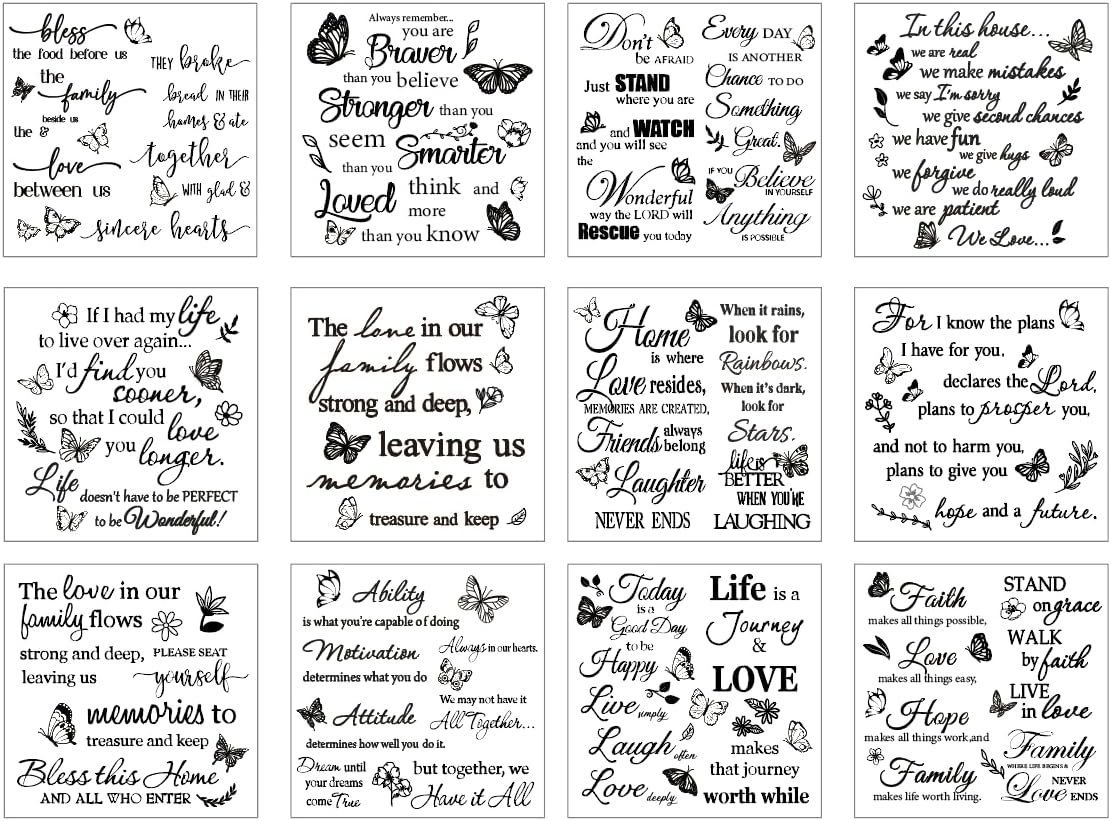 bless
the food before us
the
family
beside us
the &
love
between us
THEY broke
bread IN THEIR
homes & ate
together
WITH glad &
sincere hearts
Always remember...
you are
Braver
than you believe
Stronger than you
seem Smarter
than you
think and
Loved more
than you know
Don't
be AFRAID
Just STAND
where you are
and WATCH
and you will see
the
Wonderful
way the LORD will
Rescue you today
Every DAY
IS ANOTHER
Chance TO DO
Something
Great.
IF YOU Believe
IN YOURSELF
Anything
IS POSSIBLE
In this house...
we are real
we make mistakes
we say I'm sorry
we give second chances
we have fun
we give hugs
we forgive
we do really loud
we are patient
We Love...
If I had my life
to live over again...
I'd find you
sooner,
so that I could
you love
longer.
Life
doesn't have to be PERFECT
to be Wonderful!
The love in our
family flows
strong and deep,
leaving us
memories to
treasure and keep
Home
is where
Love resides,
MEMORIES ARE CREATED,
Friends always
belong
Laughter
NEVER ENDS
When it rains,
look for
Rainbows.
When it's dark,
look for
Stars.
life is
BETTER
WHEN YOU'RE
LAUGHING
For I know the plans
I have for you,
declares the Lord,
plans to prosper you,
and not to harm you,
plans to give you
hope and a future.
The love in our
family flows
strong and deep,
leaving us
PLEASE SEAT
yourself
memories to
treasure and keep
Bless this Home
AND ALL WHO ENTER
Ability
is what you're capable of doing
Motivation
determines what you do
Attitude
determines how well you do it.
Dream until
your dreams
come True
Always in our hearts.
We may not have it
All Together...
but together, we
Have it All
Today
is a
Good Day
to be
Happy
Live
simply
Laugh
often
Love
deeply
Life is a
Journey
&
LOVE
makes
that journey
worth while
Faith
makes all things possible,
Love
makes all things easy,
Hope
makes all things work,and
Family
makes life worth living.
STAND
on grace
WALK
by faith
LIVE
in love
Family
WHERE LIFE BEGINS &
Love NEVER
ENDS